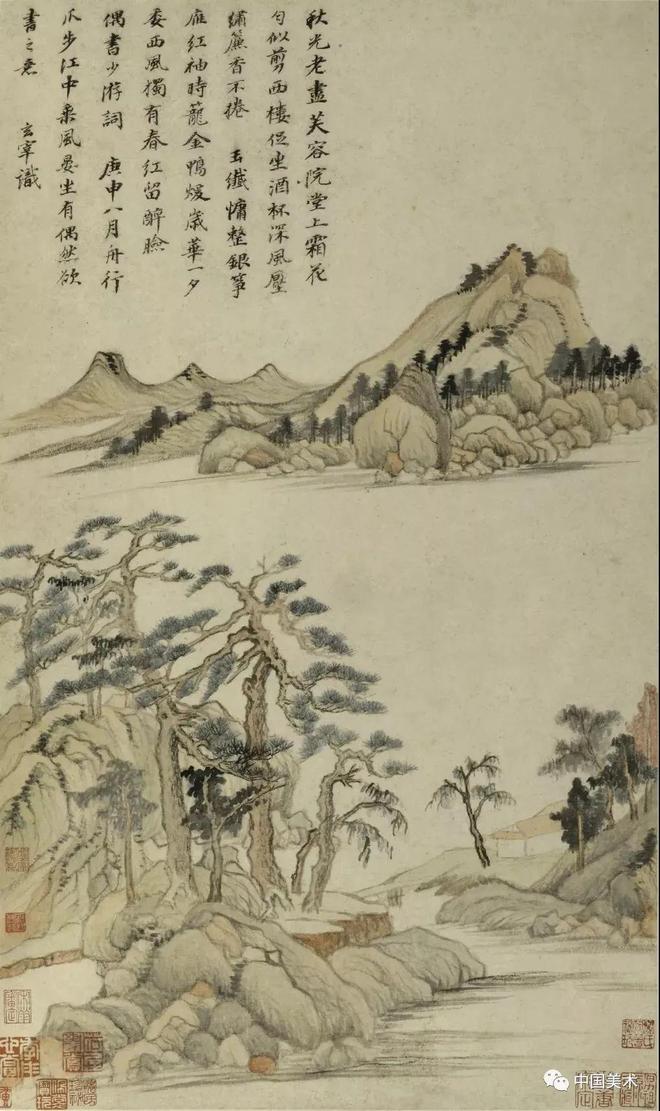 秋光老盡芙容院堂上霜花
勻似剪西樓促坐酒杯深風壓
繡簾香不捲 玉纖慵整銀箏
雁紅袖時籠金鴨煖歲華一夕
委西風獨有春紅留醉臉
偶書少游詞 庚申八月舟行
瓜步江中乘風晏坐有偶然欲
書之意 玄宰識
中国美术